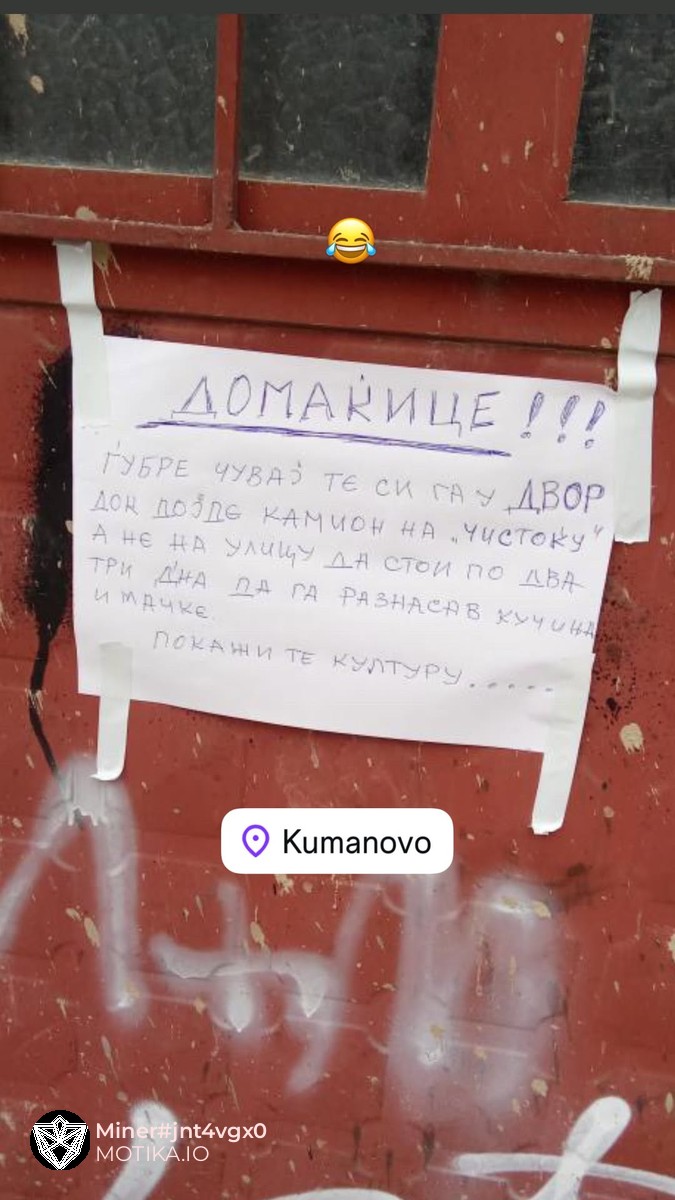 ДОМАЌИЦЕ!!!
ЃУБРЕ ЧУВАЈ ТЕ СИ ГА У ДВОР
ДОК ДОЈДЕ КАМИОН НА „ЧИСТОЌУ“
А НЕ НА УЛИЦУ ДА СТОИ ПО ДВА
ТРИ ДНА ДА ГА РАЗНАСАВ КУЧИЊА
И МАЧКЕ.
ПОКАЖИ ТЕ КУЛТУРУ.....
Kumanovo
Miner#jnt4vgx0
MOTIKA.IO